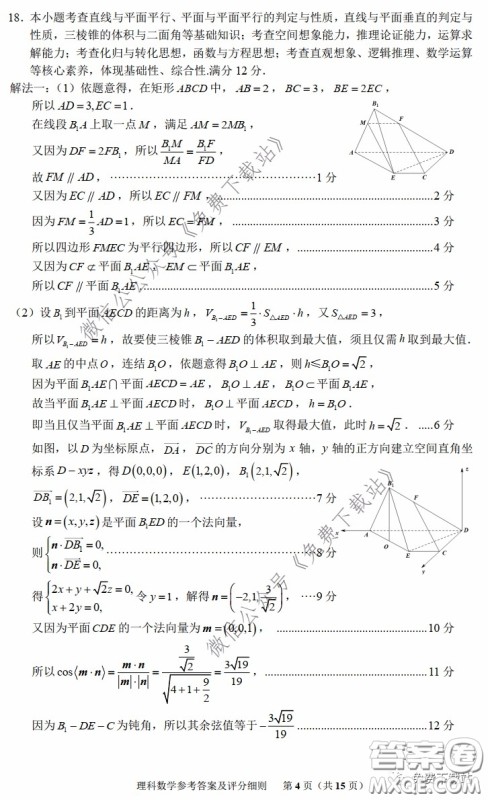 18. 本小题考查直线与平面平行、平面与平面平行的判定与性质，直线与平面垂直的判定与
性质，三棱锥的体积与二面角等基础知识；考查空间想象能力，推理论证能力，运算求
解能力；考查化归与转化思想，函数与方程思想；考查直观想象、逻辑推理、数学运算
等核心素养，体现基础性、综合性.满分 12 分.
解法一：(1) 依题意得，在矩形 ABCD 中，AB=2，BC=3，BE=2EC，
所以 AD=3,EC=1.
在线段 B₁A 上取一点 M，满足 AM=2MB₁，
又因为 DF=2FB₁，所以 B₁M/MA = B₁F/FD，
故 FM // AD，……1 分
又因为 EC // AD，所以 EC // FM，……2 分
因为 FM=1/3 AD=1，所以 EC=FM，……3 分
所以四边形 FMEC 为平行四边形，所以 CF // EM，……4 分
又因为 CF⊄平面 B₁AE，EM⊂平面 B₁AE，
所以 CF // 平面 B₁AE.……5 分
B₁
M
F
A
D
E
C
(2) 设 B₁ 到平面 AECD 的距离为 h，V_{B₁-AED}=1/3·S_{△AED}·h，又 S_{△AED}=3，
所以 V_{B₁-AED}=h，故要使三棱锥 B₁-AED 的体积取到最大值，须且仅需 h 取到最大值.
取 AE 的中点 O，连结 B₁O，依题意得 B₁O⊥AE，则 h≤B₁O=√2，
因为平面 B₁AE∩平面 AECD=AE，B₁O⊥AE，B₁O⊂平面 B₁AE，
故当平面 B₁AE⊥平面 AECD 时，B₁O⊥平面 AECD，h=B₁O.
即当且仅当平面 B₁AE⊥平面 AECD 时，V_{B₁-AED} 取得最大值，此时 h=√2. …..6 分
如图，以 D 为坐标原点，DA→，DC→ 的方向分别为 x 轴，y 轴的正方向建立空间直角坐
标系 D-xyz，得 D(0,0,0)，E(1,2,0)，B₁(2,1,√2)，
DB₁→=(2,1,√2)，DE→=(1,2,0)，……7 分
设 n=(x,y,z) 是平面 B₁ED 的一个法向量，
则 {n·DB₁→=0, n·DE→=0, ……8 分
得 {2x+y+√2z=0, x+2y=0, 令 y=1，解得 n=(-2,1,3/√2)，….9 分
B₁
z
A
x
D
O
E
C
y
又因为平面 CDE 的一个法向量为 m=(0,0,1)，……10 分
所以 cos⟨m·n⟩=m·n/|m|·|n|=(3/√2)/√(4+1+9/2)=3√19/19，……11 分
因为 B₁-DE-C 为钝角，所以其余弦值等于 -3√19/19 ……12 分
理科数学参考答案及评分细则 第 4 页（共 15 页）
微信公众号《免费下载站》
微信公众号《免费下载站》
答案圈
MXQE.COM